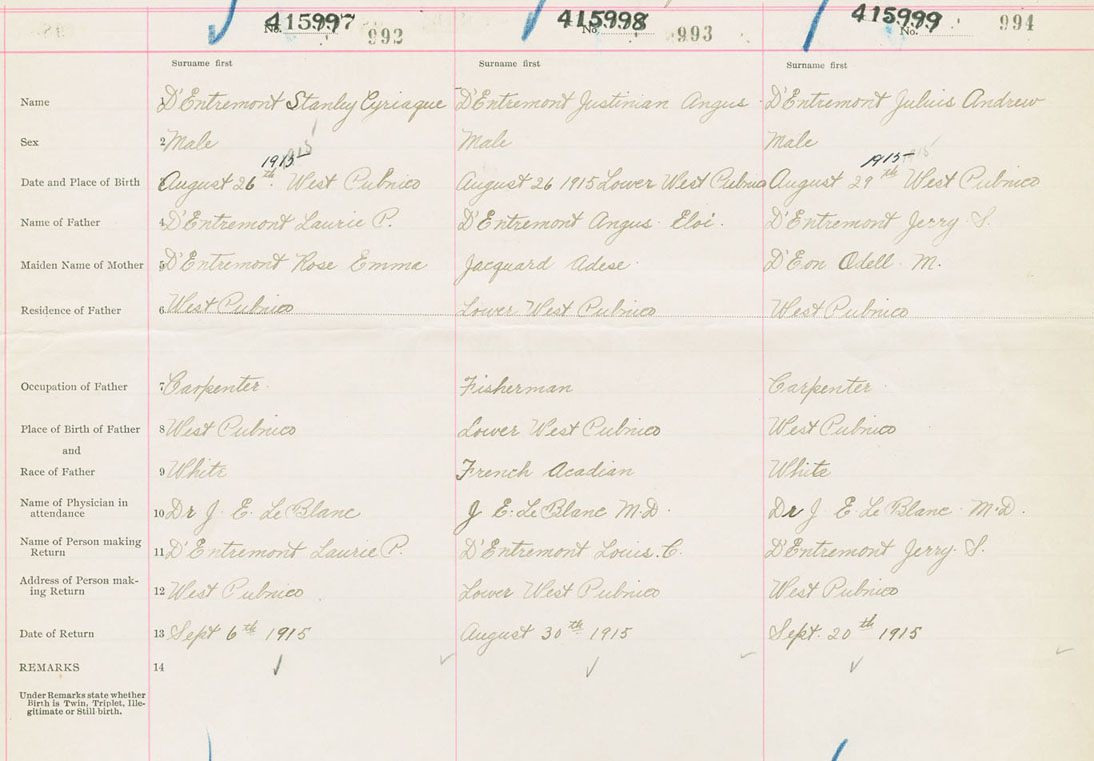 415997 415998 415999
No. 992 No. 993 No. 994
Surname first Surname first Surname first
Name 1 D'Entremont Stanley Cyriaque D'Entremont Justinian Angus D'Entremont Julius Andrew
Sex 2 Male Male Male
1915 1915 1915 1915
Date and Place of Birth 3 August 26th. West Pubnico August 26 1915 Lower West Pubnico August 29th West Pubnico
Name of Father 4 D'Entremont Laurie P. D'Entremont Angus Eloi. D'Entremont Jerry S.
Maiden Name of Mother 5 D'Entremont Rose Emma Jacquard Adese D'Eon Odell M.
Residence of Father 6 West Pubnico Lower West Pubnico West Pubnico
Occupation of Father 7 Carpenter Fisherman Carpenter
Place of Birth of Father 8 West Pubnico Lower West Pubnico West Pubnico
and
Race of Father 9 White French Acadian White
Name of Physician in
attendance 10 Dr J. E. Le Blanc J E. Le Blanc M.D. Dr J E. Le Blanc M.D.
Name of Person making
Return 11 D'Entremont Laurie P. D'Entremont Louis. C. D'Entremont Jerry S.
Address of Person mak-
ing Return 12 West Pubnico Lower West Pubnico West Pubnico
Date of Return 13 Sept 6th 1915 August 30th 1915 Sept. 20th 1915
REMARKS 14
Under Remarks state whether
Birth is Twin, Triplet, Ille-
gitimate or Still-birth.